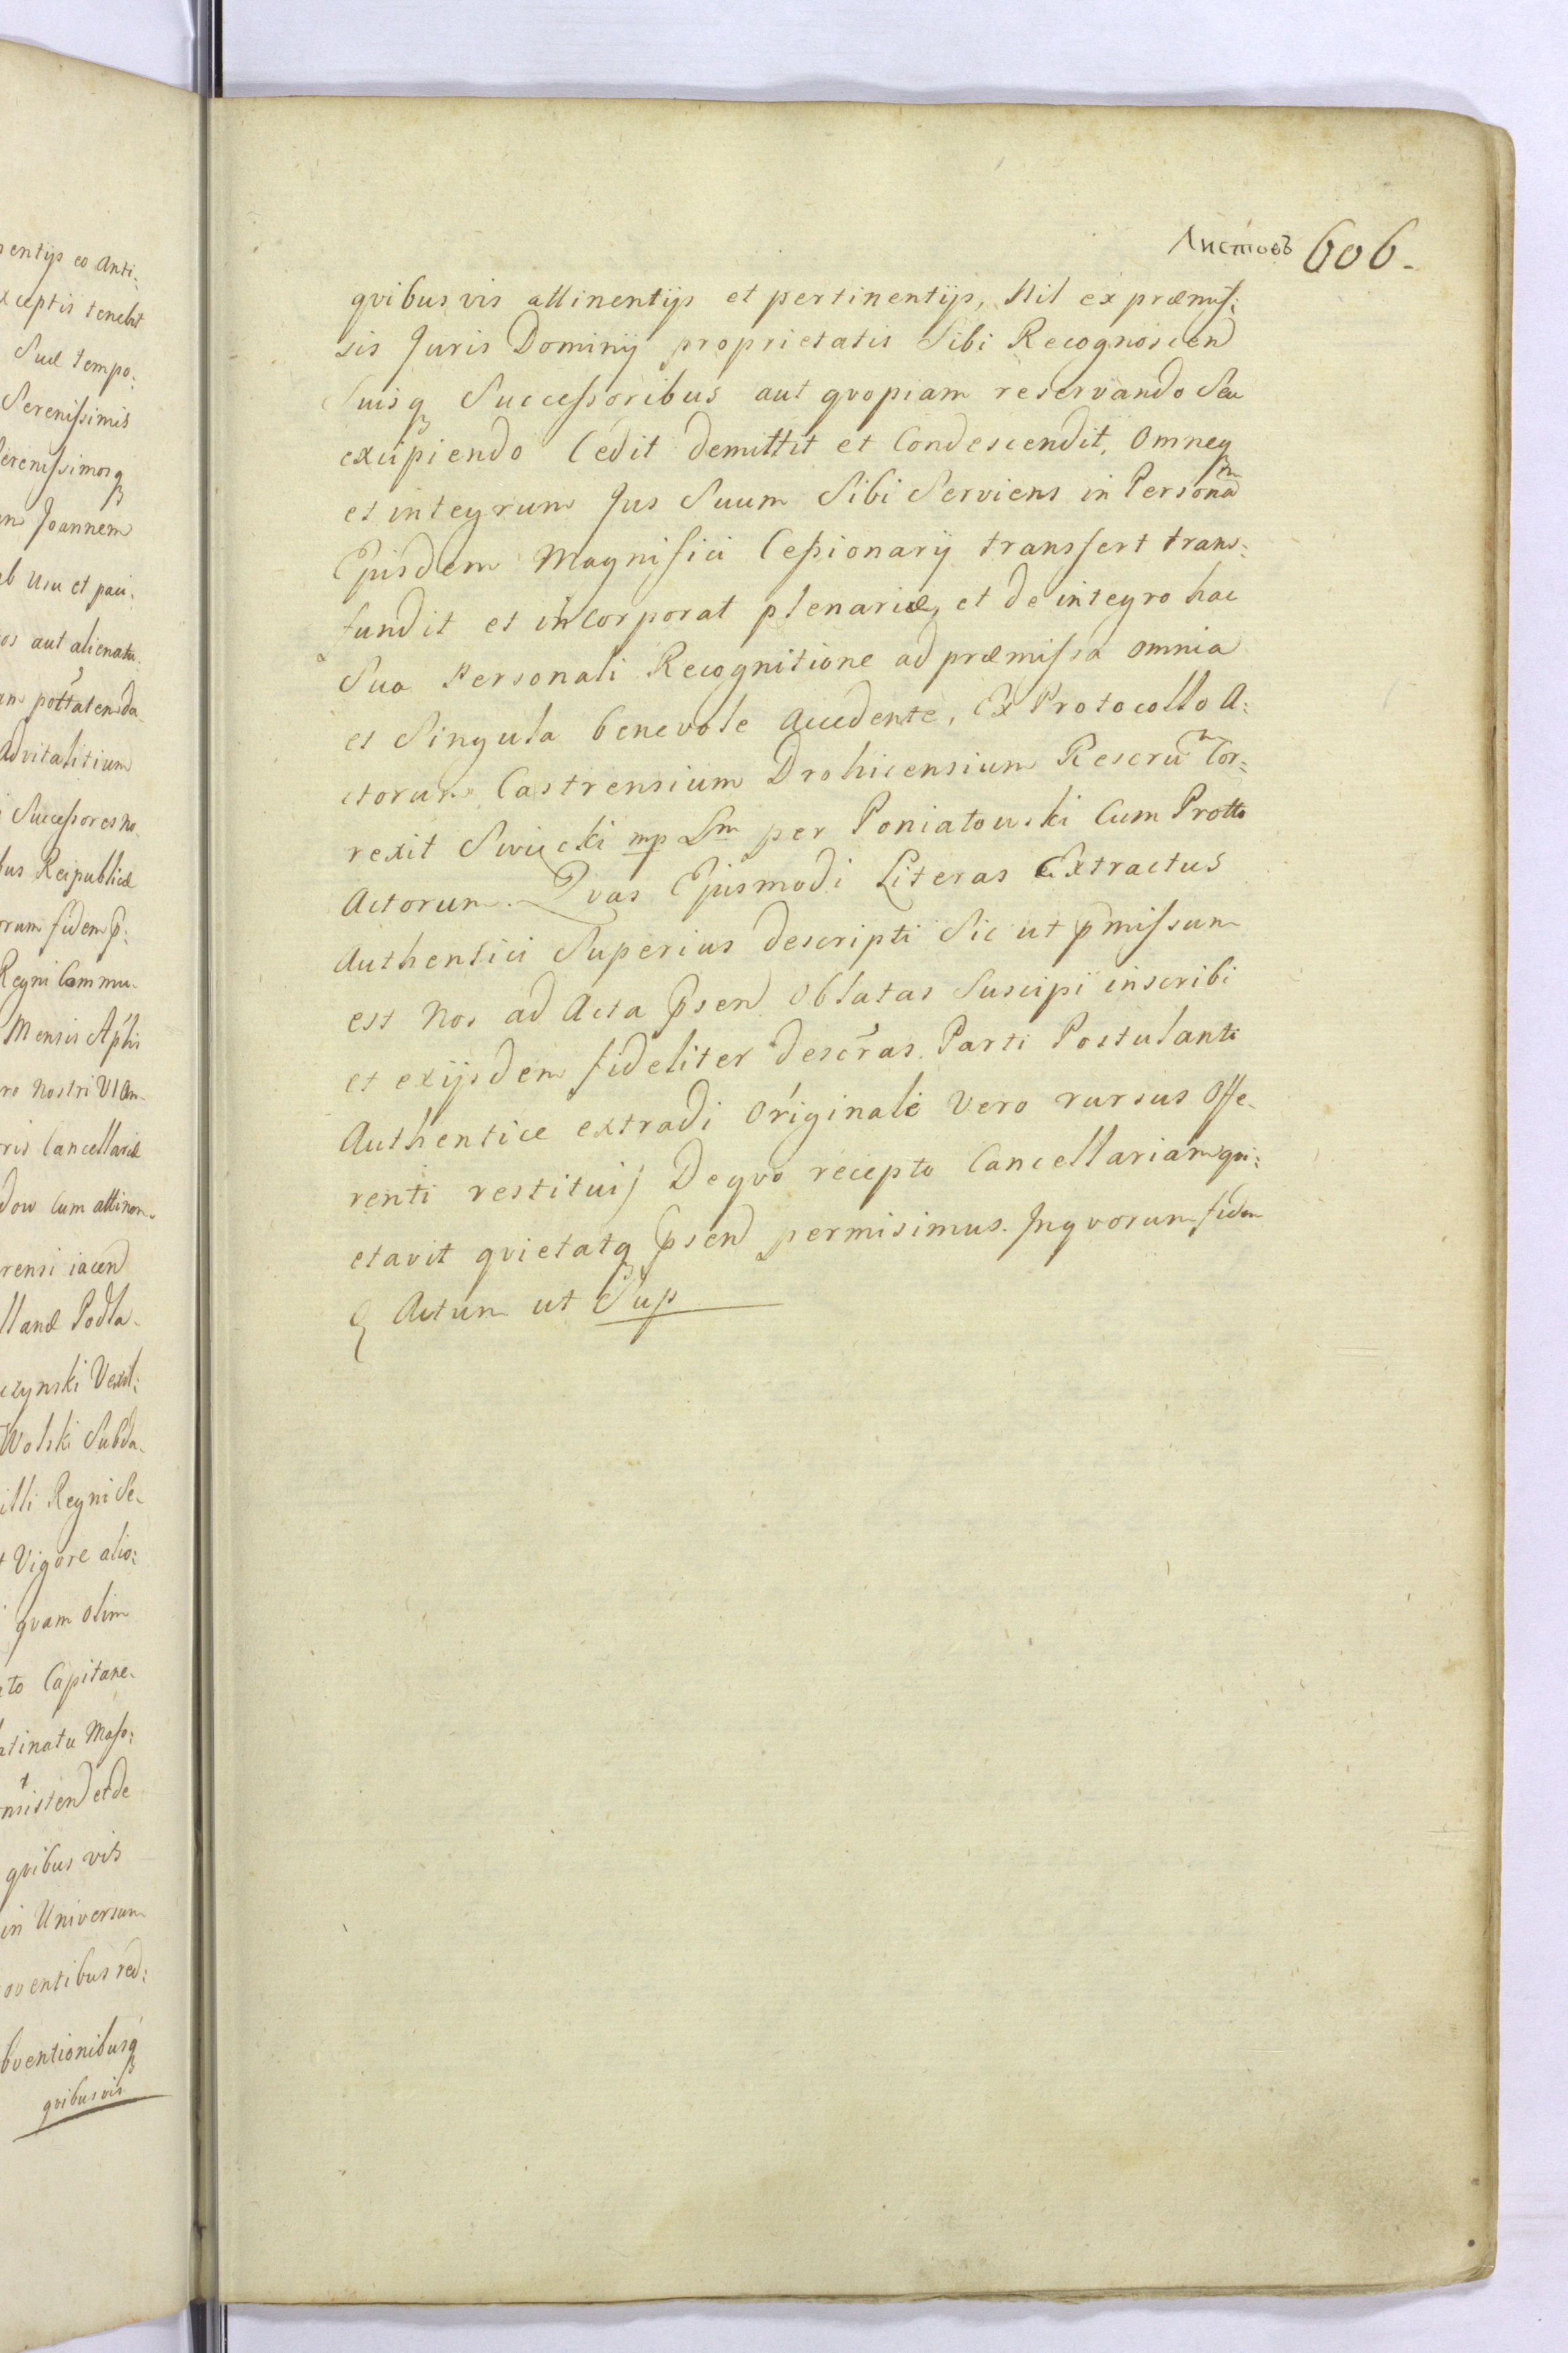 entijs eo Anti:
xceptis tenebt
Suæ tempo:
Serenissimis
erenissimosq
Joannem
ab Usu et pau:
os aut alienata
pottatenda
Advitalitium
Successores no
bus Reipublicæ
orum fidem p:
Regni Commu
Mensis Aplis
ro Nostri VI An
ris Cancellariæ
dow Cum attinen
rensi iacen
llanæ Podla
czynski Vexil:
Wolski Subda
illi Regni Se
t Vigore alio:
quam olim
to Capitane
atinatu Maso:
nsisten et de
qvibus vis
in Universum
oventibus red:
bventionibusq
qvibusvis
Листовъ 606.
qvibus vis attinentijs et pertinentijs, Nil ex præmis:
sis Juris Dominij proprietatis Sibi Recognoscen
Suisq Successoribus aut qvopiam reservando Seu
excipiendo Cedit demittit et Condescendit, Omneq
et integrum Jus Suum Sibi Serviens in Persona
Ejusdem Magnifici Cessionarij transfert trans:
fundit et incorporat plenarie, et de integro hac
Sua Personali Recognitione ad præmissa omnia
et Singula benevole accedente, Ex Protocollo A:
ctorum Castrensium Drohicensium Rescru Cor:
rexit Swiecki mp Lm per Poniatowski Cum Protto
Actorum. Qvas Ejusmodi Literas Extractus
Authentici Superius descripti Sic ut pmissum
est Nos ad Acta psen Oblatas Suscipi inscribi
et exijsdem fideliter descras. Parti Postulanti
Authentice extradi Originale Vero rursus Offe
renti restitui; Deqvo recepto Cancellariam qvi:
etavit qvietatq psen permisimus. Inqvorum fidem
& Actum ut Sup